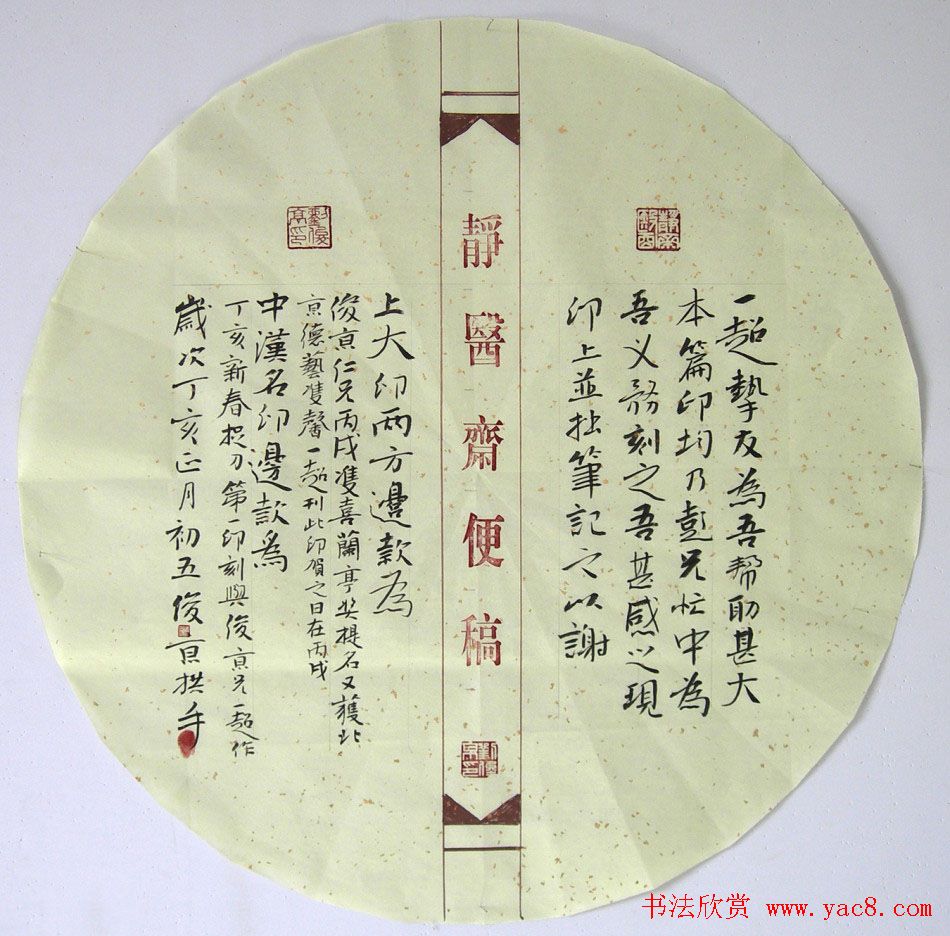 一超摯友為吾幫助甚大
本篇印均乃彭兄忙中為
吾义務刻之吾甚感之現
印上並拙筆記之以謝
靜醫齋便稿
上大印两方邊款為
俊亰仁兄丙戌雙喜蘭亭奖提名又獲北
亰德藝雙馨一超刊此印贺之日在丙戌
中漢名印邊款為
丁亥新春捉刀第一印刻與俊亰兄一超作
歲次丁亥正月初五俊亰拱手
书法欣赏 www.yac8.com